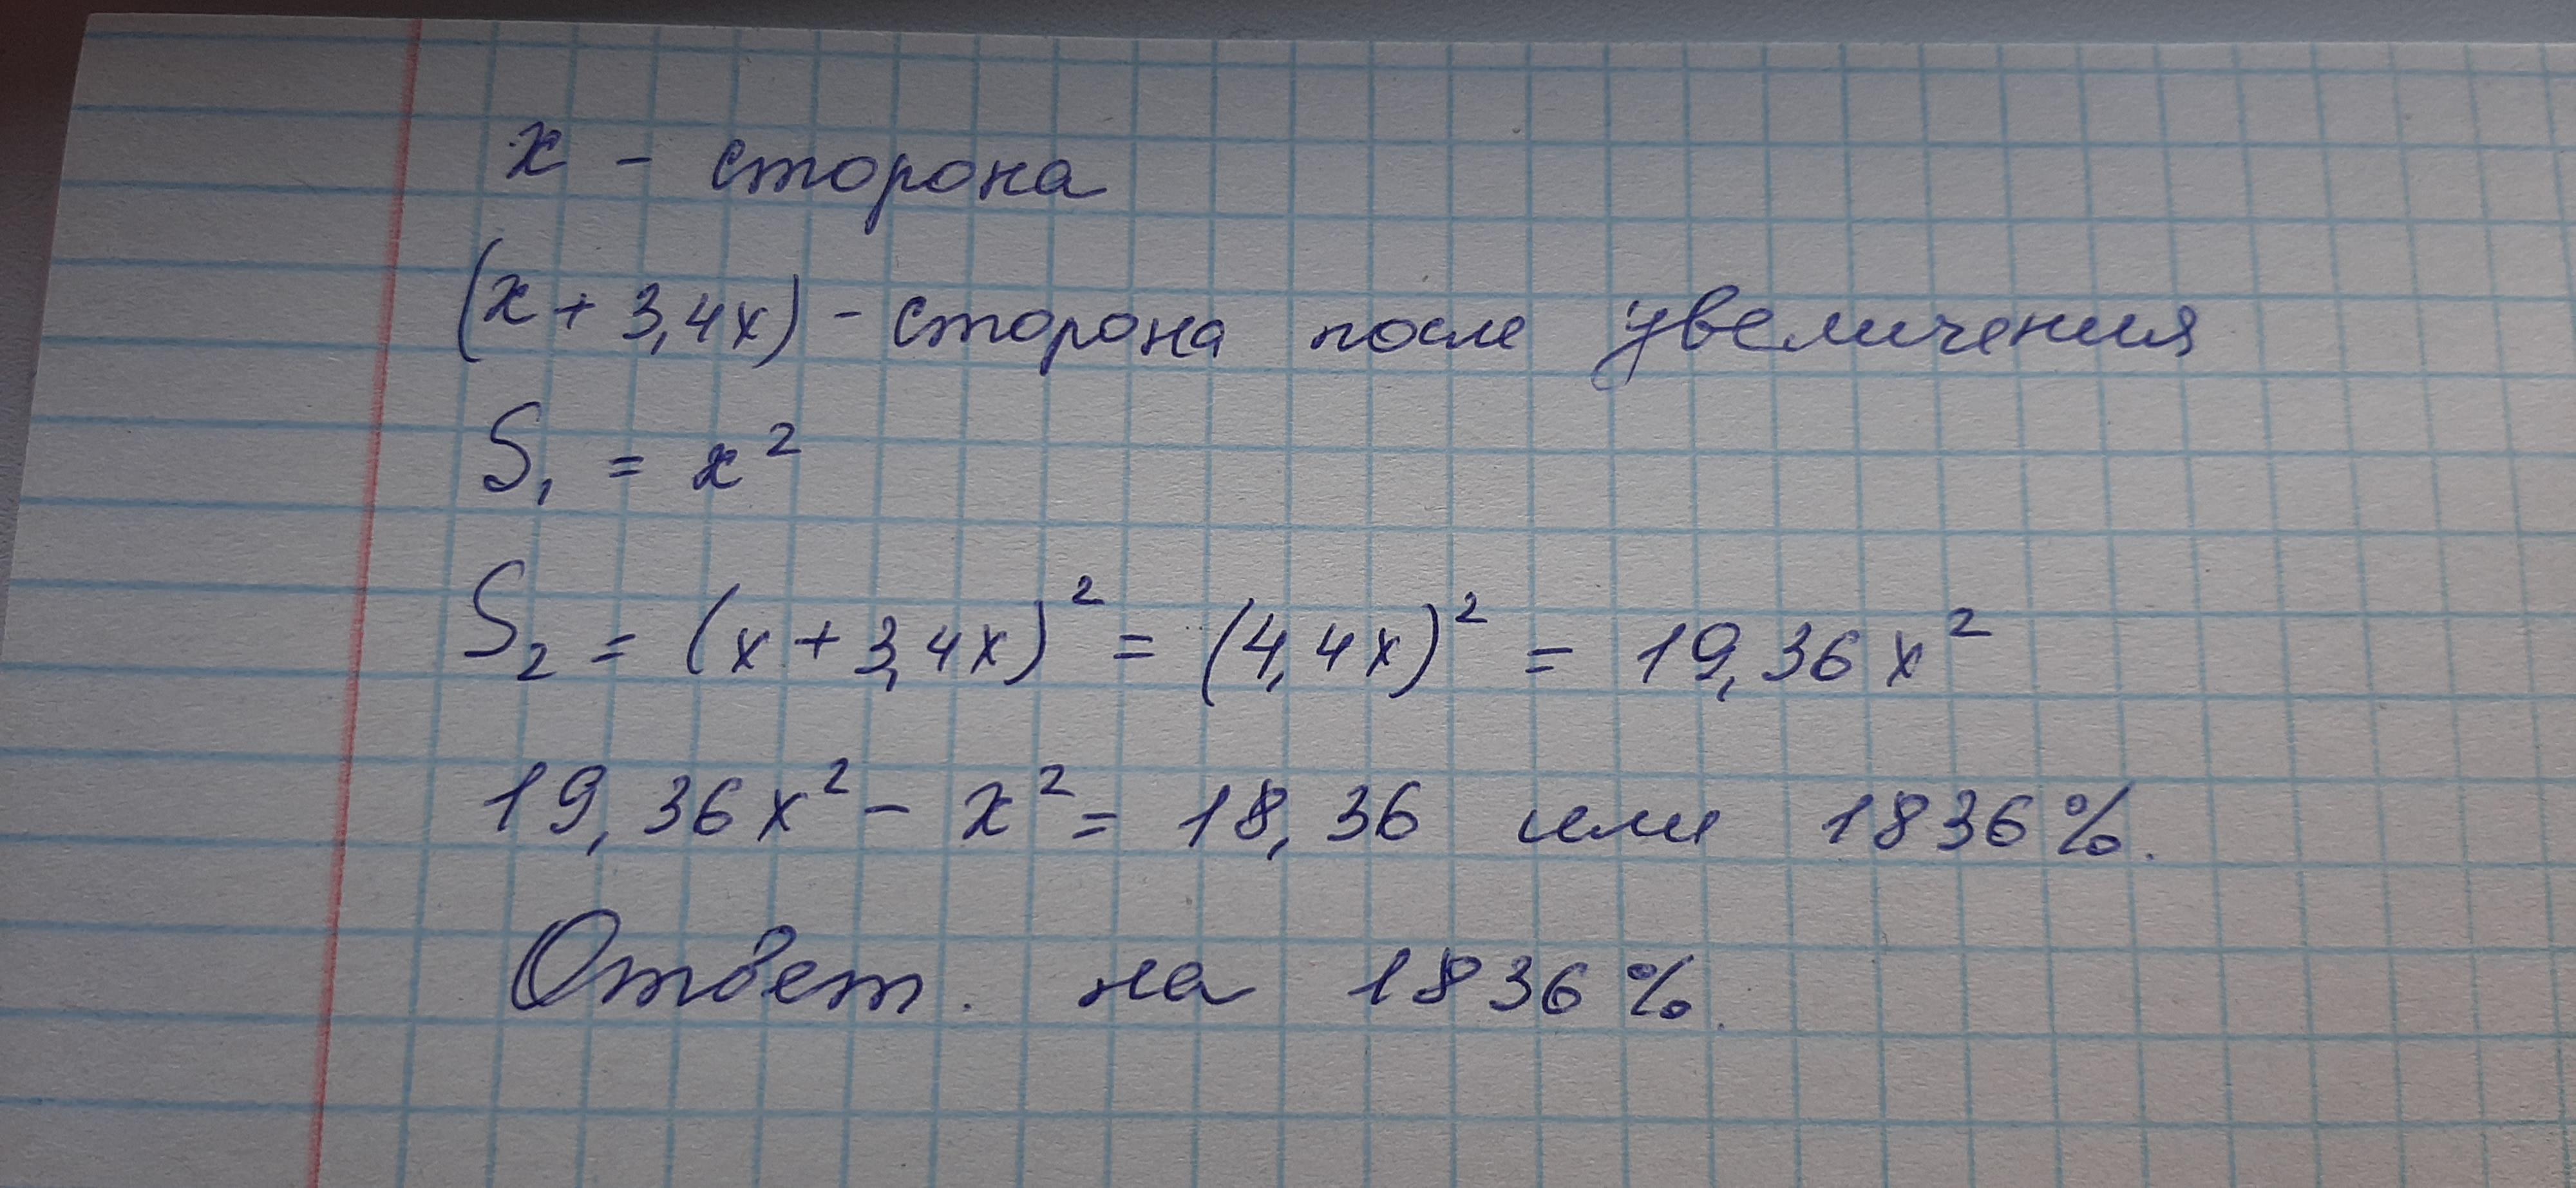 x - сторона
(x + 3,4x) - сторона после увеличения
S₁ = x²
S₂ = (x + 3,4x)² = (4,4x)² = 19,36x²
19,36x² - x² = 18,36 или 1836%.
Ответ. на 1836%.